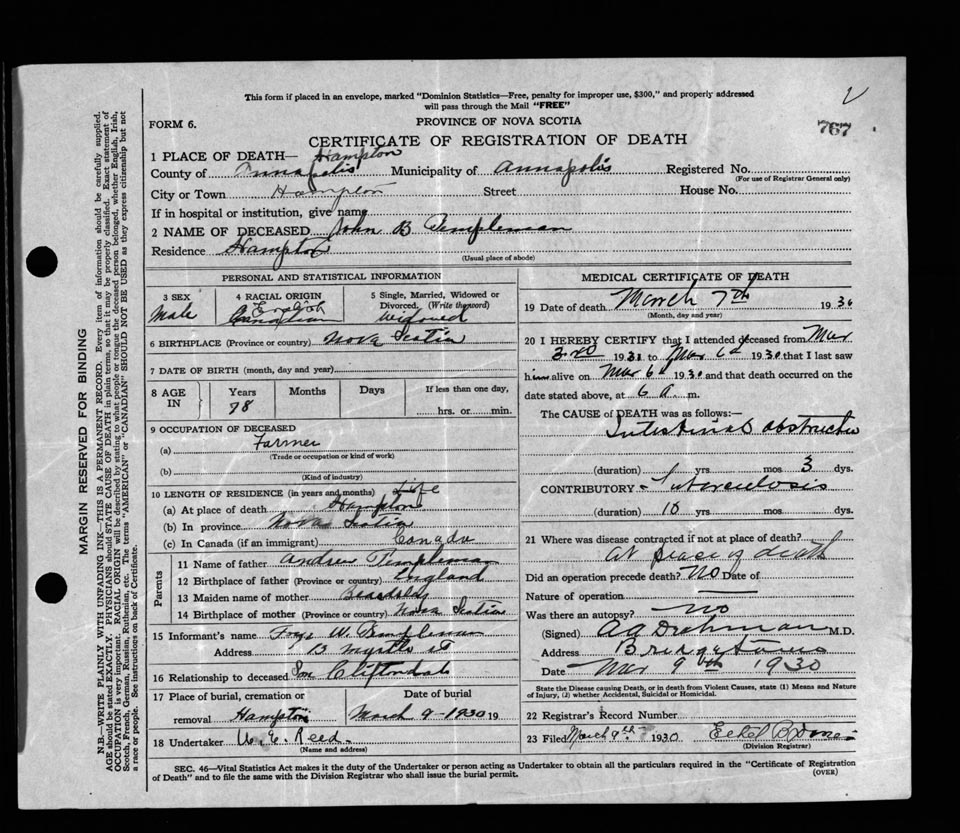 This form if placed in an envelope, marked "Dominion Statistics—Free, penalty for improper use, $300," and properly addressed
will pass through the Mail "FREE"
767
FORM 6.
PROVINCE OF NOVA SCOTIA
CERTIFICATE OF REGISTRATION OF DEATH
1 PLACE OF DEATH— Hampton
County of Annapolis Municipality of Annapolis Registered No.
(For use of Registrar General only)
City or Town Hampton Street House No.
If in hospital or institution, give name
2 NAME OF DECEASED John B Templeman
Residence Hampton
(Usual place of abode)
PERSONAL AND STATISTICAL INFORMATION
3 SEX
Male
4 RACIAL ORIGIN
English
Canadian
5 Single, Married, Widowed or
Divorced. (Write the word)
Widowed
6 BIRTHPLACE (Province or country) Nova Scotia
7 DATE OF BIRTH (month, day and year)
8 AGE IN
Years
78
Months
Days
If less than one day,
hrs. or min.
9 OCCUPATION OF DECEASED
(a) Farmer
(Trade or occupation or kind of work)
(b)
(Kind of industry)
10 LENGTH OF RESIDENCE (in years and months) Life
(a) At place of death Hampton
(b) In province Nova Scotia
(c) In Canada (if an immigrant) Canada
Parents
11 Name of father Andrew Templeman
12 Birthplace of father (Province or country) England
13 Maiden name of mother
14 Birthplace of mother (Province or country) Nova Scotia
15 Informant's name W. Templeman
Address 13 Myrtle st
16 Relationship to deceased Son Cliftondale
17 Place of burial, cremation or
removal Hampton
Date of burial
March 9 1930 19
18 Undertaker W. E. Reed.
(Name and address)
MEDICAL CERTIFICATE OF DEATH
19 Date of death March 7th 1930
(Month, day and year)
20 I HEREBY CERTIFY that I attended deceased from Mar
3rd 193 to Mar 6th 1930 that I last saw
him alive on Mar 6th 1930 and that death occurred on the
date stated above, at 6 a m.
The CAUSE of DEATH was as follows:—
Intestinal obstruction
(duration) yrs. mos 3 dys.
CONTRIBUTORY Tuberculosis
(duration) 10 yrs. mos dys.
21 Where was disease contracted if not at place of death?
At place of death
Did an operation precede death? No Date of
Nature of operation
Was there an autopsy? no
(Signed) M.D.
Address Bridgetown
Date Mar 9th 1930
State the Disease causing Death, or in death from Violent Causes, state (1) Means and Nature
of Injury, (2) whether Accidental, Suicidal or Homicidal.
22 Registrar's Record Number
23 Filed March 9th 1930
(Division Registrar)
SEC. 46—Vital Statistics Act makes it the duty of the Undertaker or person acting as Undertaker to obtain all the particulars required in the "Certificate of Registration
of Death" and to file the same with the Division Registrar who shall issue the burial permit.
(OVER)
MARGIN RESERVED FOR BINDING
N.B.—WRITE PLAINLY WITH UNFADING INK—THIS IS A PERMANENT RECORD. Every item of information should be carefully supplied.
AGE should be stated EXACTLY. PHYSICIANS should STATE CAUSE OF DEATH in plain terms, so that it may be properly classified. Exact statement of
OCCUPATION is very important. RACIAL ORIGIN will be described by stating to what people or tongue the deceased person belonged, whether English, Irish,
Scotch, French, German, Russian, Ruthenian, etc. The terms "AMERICAN" or "CANADIAN" SHOULD NOT BE USED as they express citizenship but not
a race or people. See instructions on back of Certificate.